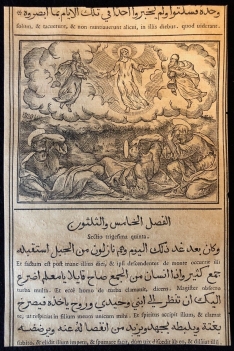 وحده فسكتوا ولم يخبروا احدا في تلك الايام بما ابصروه
solus, & tacuerunt, & non nuntiauerunt alicui, in illis diebus, quod uiderant.
الفصل الخامس والثلثون
Sectio trigesima quinta.
وكان بعد غد ذلك اليوم وهم نازلون من الجبل استقبله
Et factum est post mane illius diei, & ipsi descendentes de monte occurrit illi
جمع كثير واذا انسان من الجمع صاح قايلا يامعلم اضرع
turba multa. Et ecce homo de turba clamauit, dicens, Magister obsecro
اليك ان تنظر الى ابني وحيدي وروح ياخذه فيصرخ
te, ut respicias in filium meum Et spiritus accipit illum, & clamat
بغتة ويلبطه بجهد ويزبد من عنه
& elidit illum